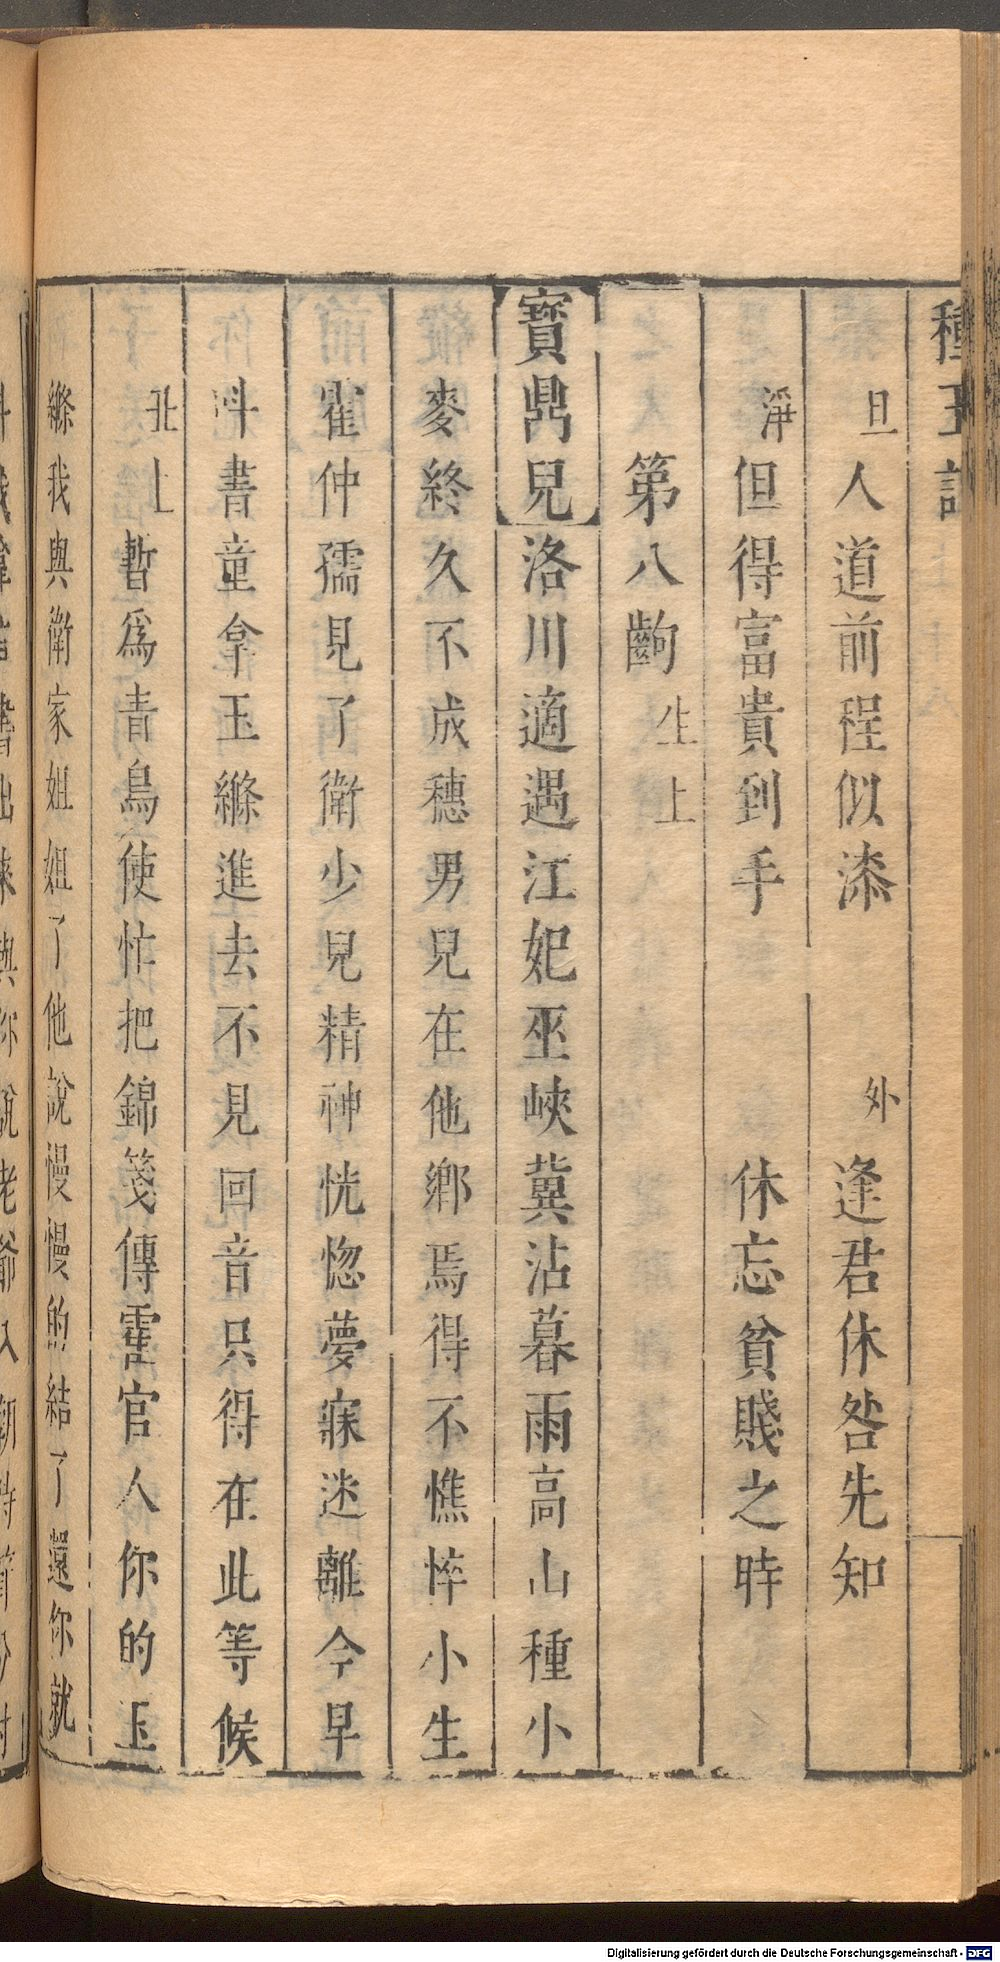 種玉記
旦人道前程似漆 外逢君休咎先知
淨但得富貴到手 休忘貧賤之時
第八齣 生上
寶鼎兒洛川適遇江妃巫峽冀沾暮雨高山種小
麥終久不成穗男兒在他鄉焉得不憔悴小生
霍仲孺見了衛少兒精神恍惚夢寐迷離今早
書童拿玉縧進去不見回音只得在此等候
丑上暫爲青鳥使忙把錦箋傳霍官人你的玉
縧我與衛家姐姐了他說慢慢的結了還你就
Digitalisierung gefördert durch die Deutsche Forschungsgemeinschaft - DFG